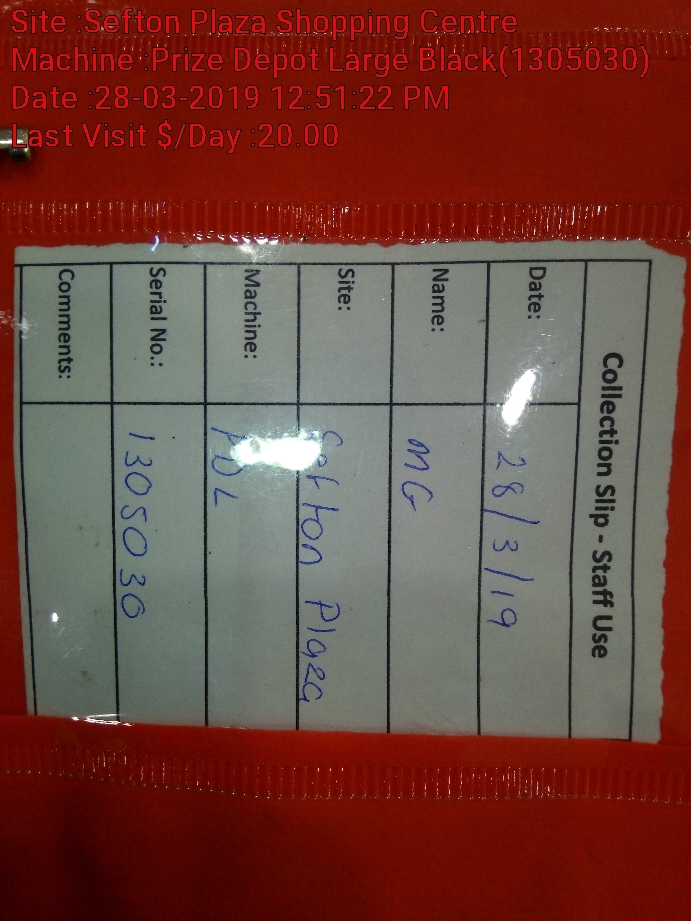 Site :Sefton Plaza Shopping Centre
Machine :Prize Depot Large Black(1305030)
Date :28-03-2019 12:51:22 PM
Last Visit $/Day :20.00
Collection Slip - Staff Use
Date: 28/3/19
Name: MG
Site: Sefton Plaza
Machine: PDL
Serial No.: 1305030
Comments: